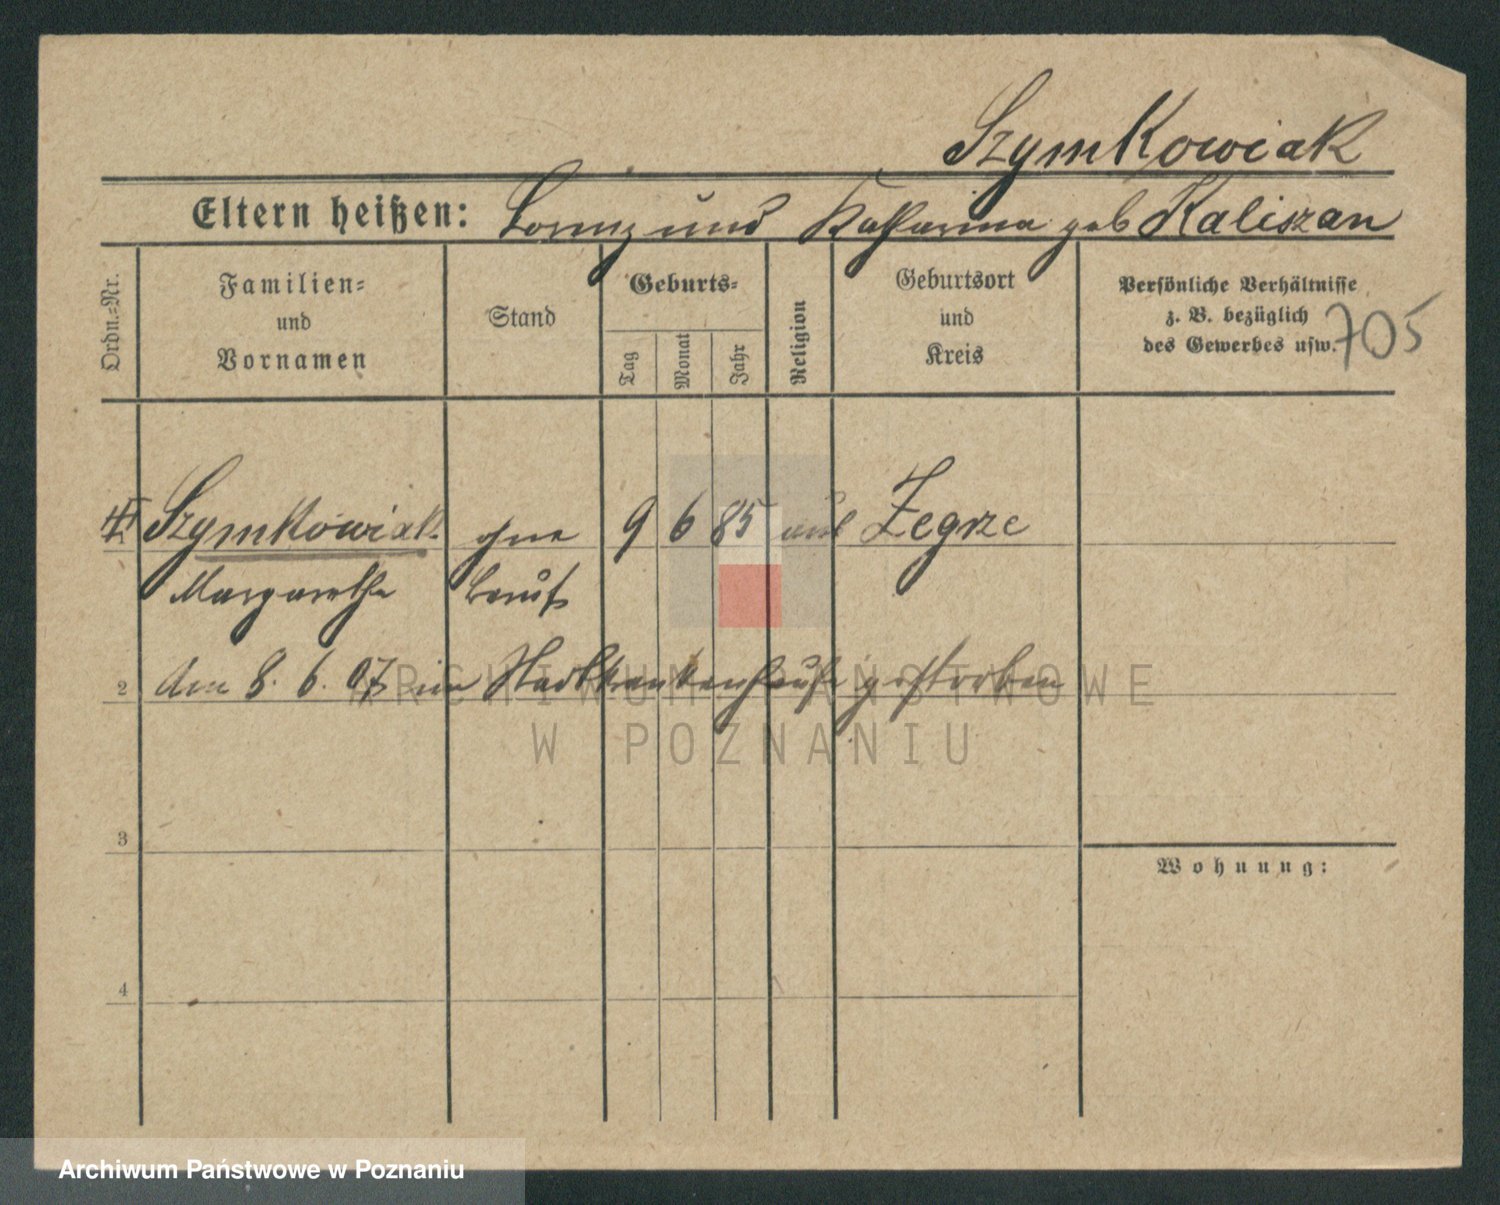 Szymkowiak
Eltern heißen: Lorenz und Katharina geb Kaliszan
Ordn.=Nr.
Familien=
und
Vornamen
Stand
Geburts=
Tag
Monat
Jahr
Religion
Geburtsort
und
Kreis
Persönliche Verhältnisse
z. B. bezüglich
des Gewerbes usw.
705
Szymkowiak ohne 9 6 85 Zegrze
Margarethe Beruf
2 den 8. 6. 07 im Stadtkrankenhause gestorben
ARCHIWUM PAŃSTWOWE
W POZNANIU
3
Wohnung:
4
Archiwum Państwowe w Poznaniu